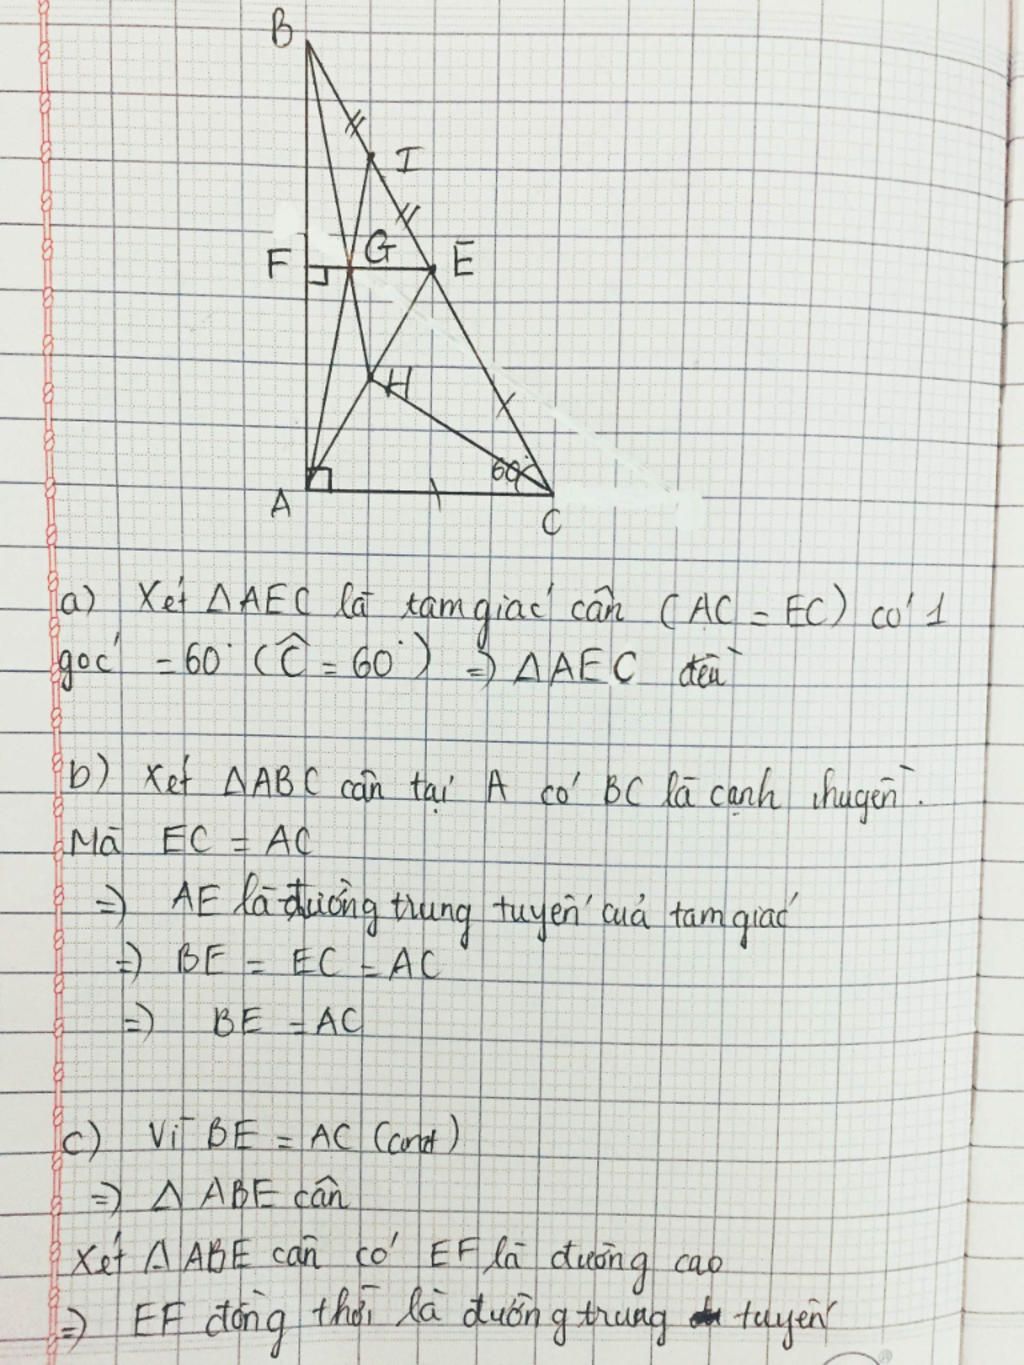 B
I
F G E
H
60°
A
C
a) Xét △AEC là tam giác cân (AC = EC) có 1
góc = 60° (Ĉ = 60°) => △AEC đều
b) Xét △ABC cân tại A có BC là cạnh huyền.
Mà EC = AC
=> AE là đường trung tuyến của tam giác
=> BE = EC = AC
=> BE = AC
c) Vì BE = AC (cmt)
=> △ ABE cân
Xét △ ABE cân có EF là đường cao
=> EF đồng thời là đường trung tuyến